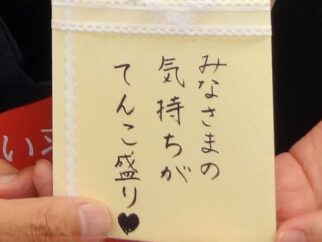 みなさまの
気持ちが
てんこ盛り♥
い